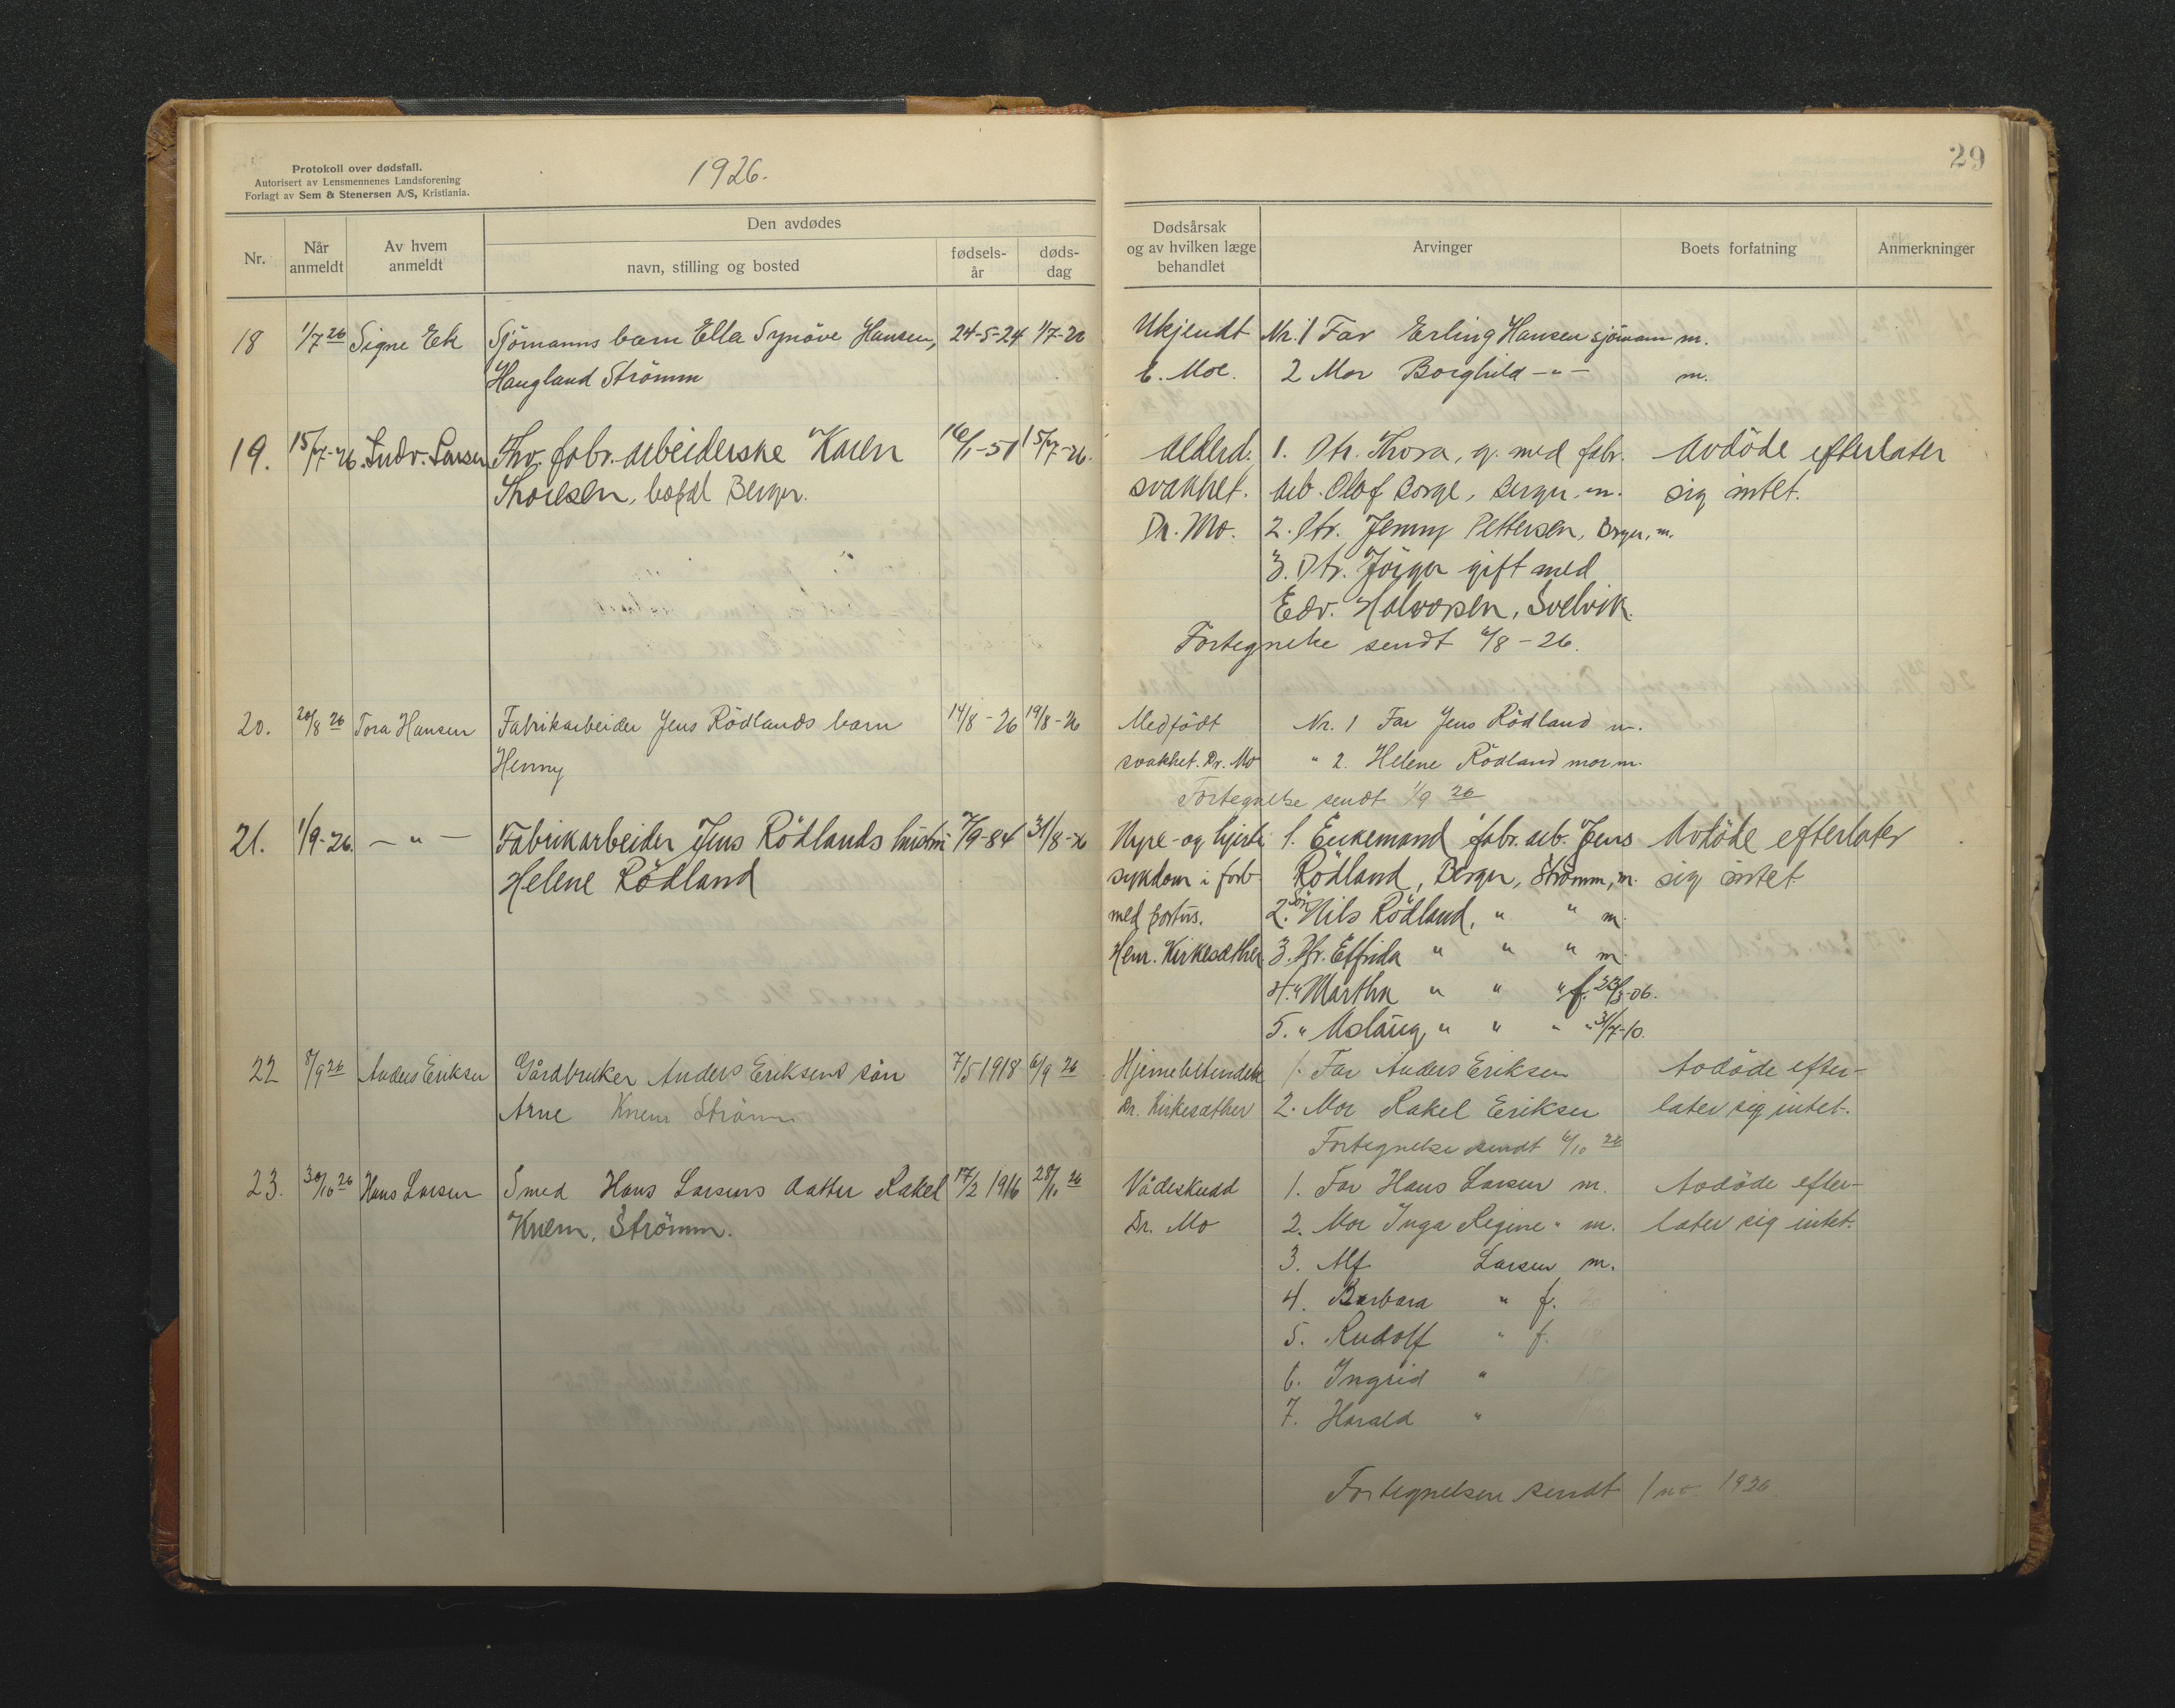 Protokoll over dødsfall.
Autorisert av Lensmennenes Landsforening
Forlagt av Sem & Stenersen A/S, Kristiania.
1926.
29
Nr.
Når anmeldt
Av hvem anmeldt
Den avdødes
navn, stilling og bosted
fødsels-år
døds-dag
Dødsårsak og av hvilken læge behandlet
Arvinger
Boets forfatning
Anmerkninger
18 1/7 26 Signe Ek Sjömanns barn Ella Synöve Hansen, 24-5-24 1/7-26 Ukjendt Nr. 1 Far Erling Hansen sjömann m.
Haugland Strömm E. Moe. 2 Mor Borghild -"- m.
19. 15/7-26. Ludv. Larsen Fhv. fabr. arbeiderske Karen 16/1-51 15/7-26. Alderd. 1. Dtr. Thora, g. med fabr. Avdöde efterlater
Thoresen, bopæl Berger. svakhet. arb. Olaf Borge, Berger. m. sig intet.
Dr. Mo. 2. Dtr. Jenny Pettersen, Berger, m.
3. Dtr. gift med
Edv. Halvorsen, Svelvik.
Fortegnelse sendt 4/8-26.
20. 20/8 26 Tora Hansen Fabrikarbeider Jens Rödlands barn 14/8-26 19/8-26 Medfödt Nr. 1 Far Jens Rödland m.
Henny svakhet. Dr. Mo " 2. Helene Rödland mor m.
Fortegnelse sendt 1/9 26
21. 1/9-26. -"- Fabrikarbeider Jens Rödlands hustru 7/9-84 31/8-26 Nyre- og hjerte 1. Enkemand fabr. arb. Jens Avdöde efterlater
Helene Rödland sykdom i forb. Rödland, Berger, Strömm, m. sig intet
med partus. 2. Sön Nils Rödland, " " m.
Henr. Kirkesæther 3. Dtr. Elfrida " " " m.
4. " Martha " " " f. 23/3-06.
5. " Aslaug " " " " 31/7-10.
22 8/9 26 Anders Eriksen Gårdbruker Anders Eriksens sön 7/5 1918 6/9 26 Hjernebetendelse 1. Far Anders Eriksen Avdöde efter-
Arne Knem Strömm Dr. Kirkesæther 2. Mor Rakel Eriksen later sig intet.
Fortegnelse sendt 6/10 26
23. 30/10 26 Hans Larsen Smed Hans Larsens datter Rakel 17/2 1916 28/10 26 Vådeskudd 1. Far Hans Larsen m. Avdöde efter-
Knem, Strömm. Dr. Mo 2. Mor Inga Regine " m. later sig intet.
3. Alf Larsen m.
4. Barbara " f.
5. Rudolf " f.
6. Ingrid "
7. Harald "
Fortegnelsen sendt 1 no. 1926